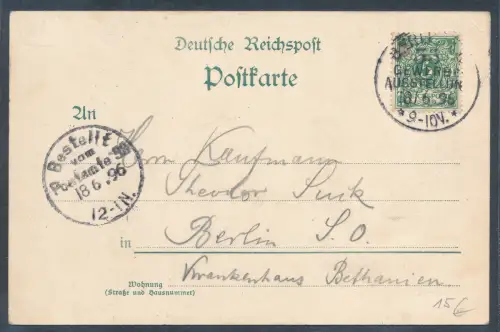 Deutsche Reichspost
Postkarte
GEWERBE
AUSSTELLUNG
18/6.96
* 9-10V. *
An
Herrn Kaufmann
Bestellt
vom
Postamte
18.6.96
12-1N.
Theodor
in Berlin S. O.
Krankenhaus Bethanien
Wohnung
(Straße und Hausnummer)
15€